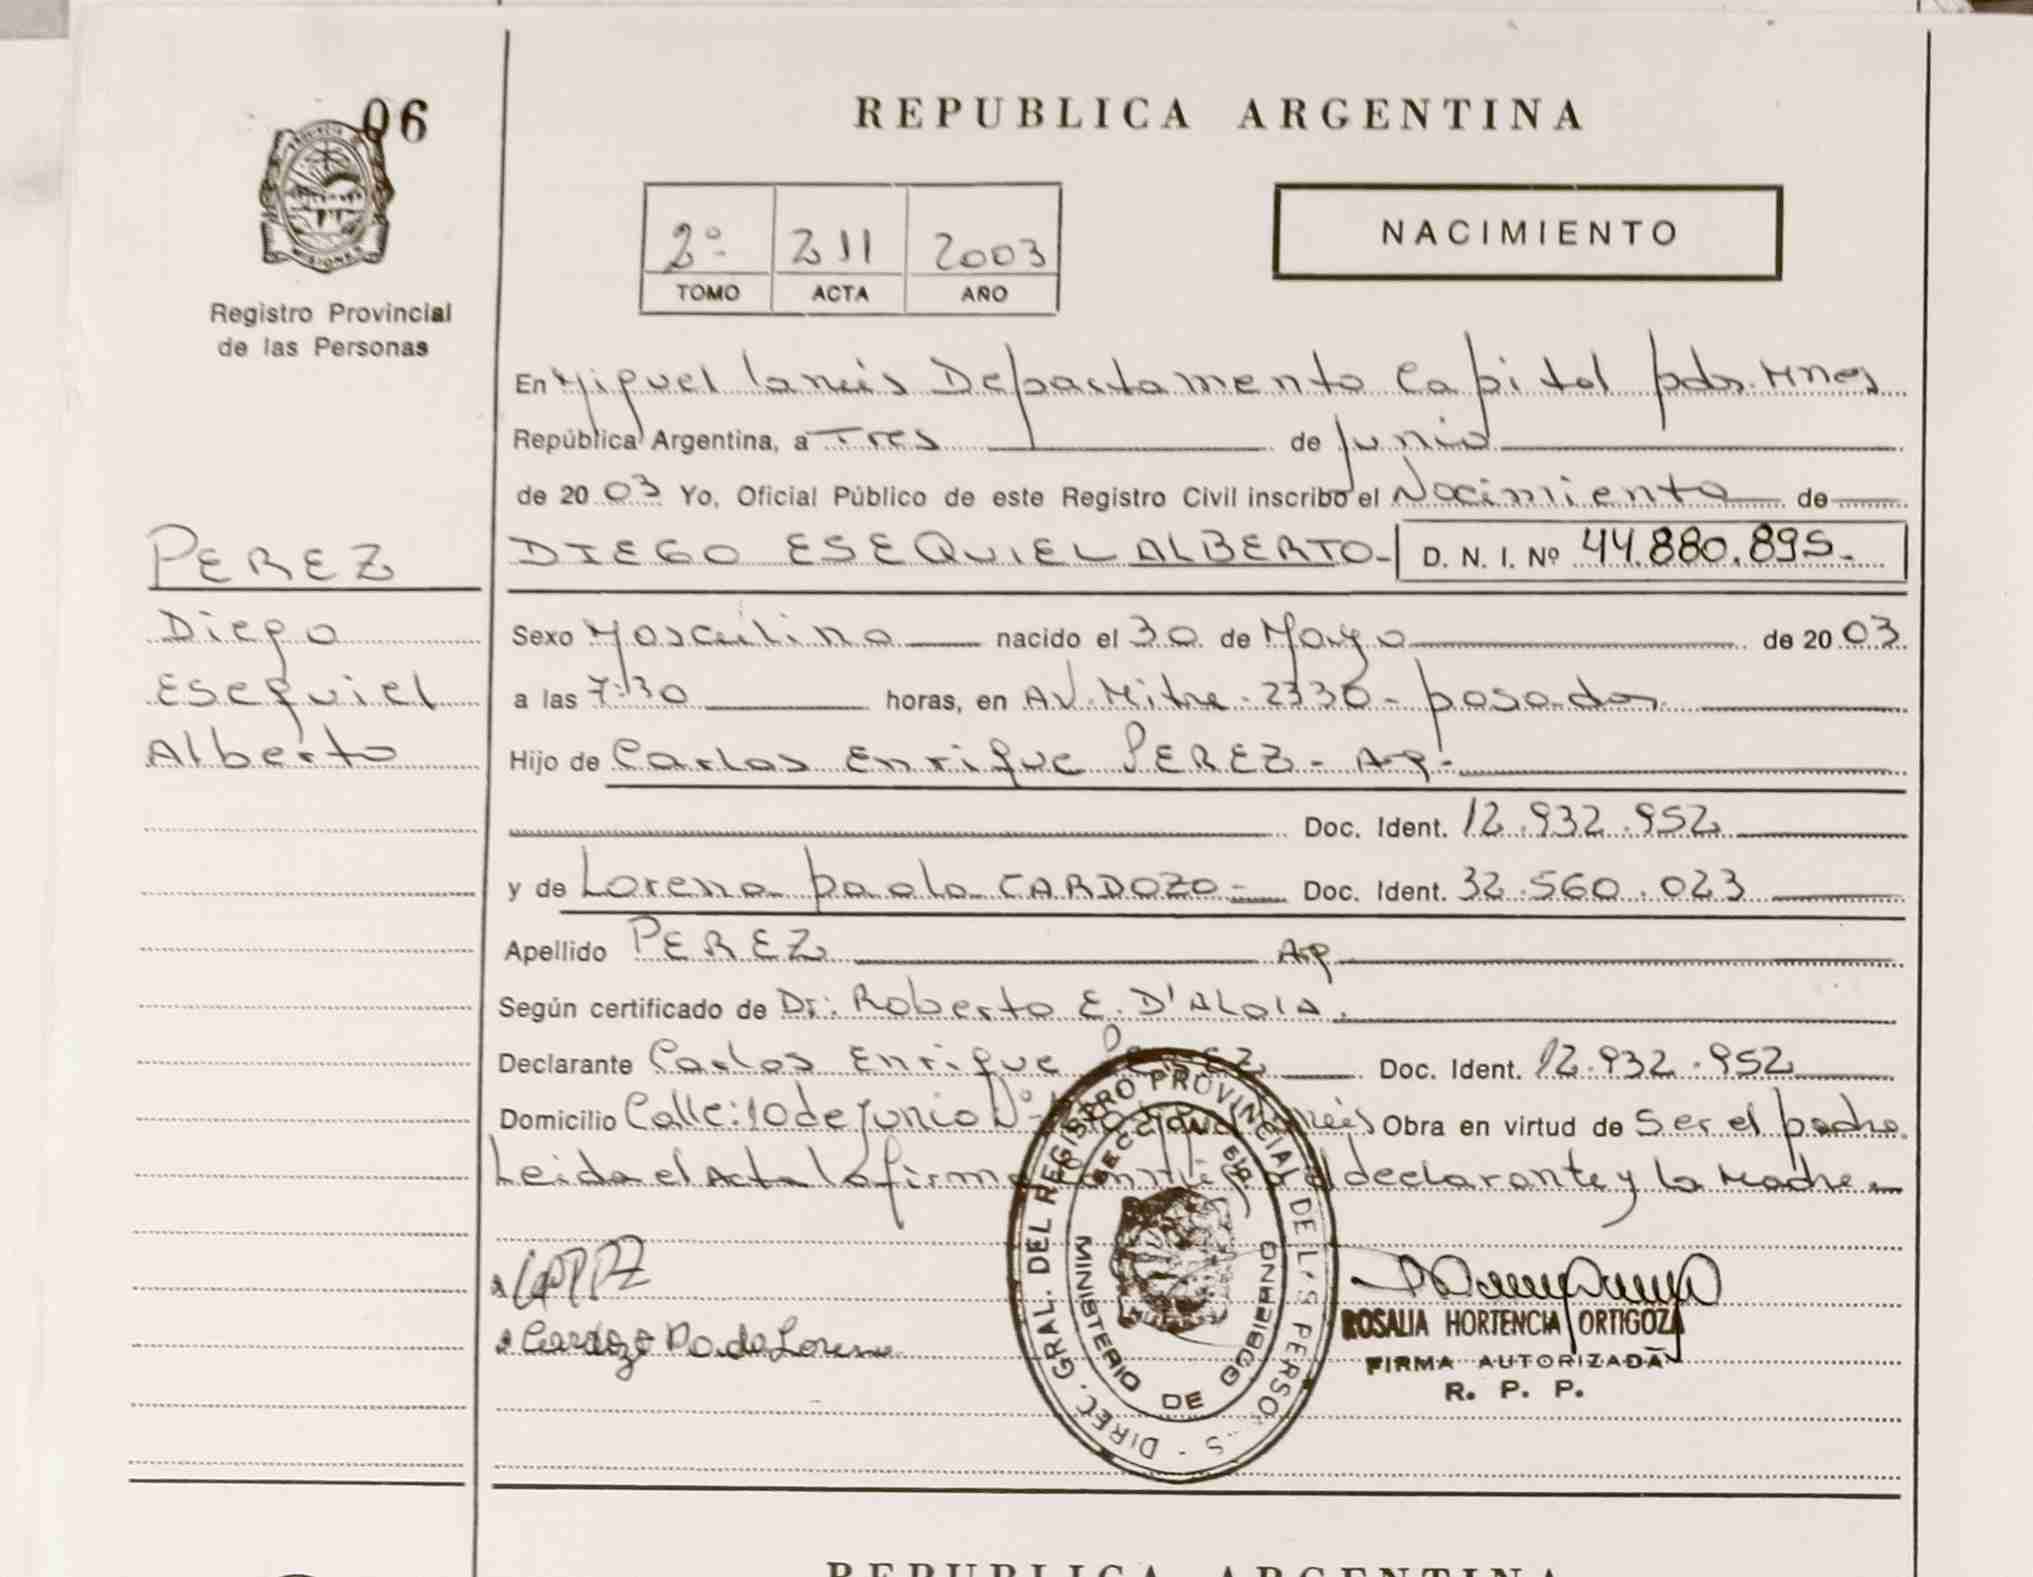 06
PROVINCIA
MISIONES
Registro Provincial
de las Personas
REPUBLICA ARGENTINA
2º 211 2003
TOMO ACTA AÑO
NACIMIENTO
En Miguel Lanus Departamento Capital pdas. Mnes
República Argentina, a Tres de Junio
de 20 03 Yo, Oficial Público de este Registro Civil inscribo el Nacimiento de
PEREZ
DIEGO ESEQUIEL ALBERTO- D. N. I. Nº 44.880.895.
Diego
Esequiel
Alberto
Sexo Masculino nacido el 30 de Mayo de 20 03
a las 7:30 horas, en Av. Mitre - 2330 - posadas
Hijo de Carlos Enrique PEREZ - Ap-
Doc. Ident. 12.932.952
y de Lorena paola CARDOZO - Doc. Ident. 32.560.023
Apellido PEREZ Ap
Según certificado de Dr: Roberto E. D'ALOIA.
Declarante Carlos Enrique PEREZ Doc. Ident. 12.932.952
Domicilio Calle: 10 de Junio Nº Obra en virtud de Ser el padre.
Leida el Acta la firman conmigo el declarante y la Madre -
Cardozo Paola Lorena
DIREC. GRAL. DEL REGISTRO PROVINCIAL DE L S PERSO S
MINISTERIO DE GOBIERNO
ROSALIA HORTENCIA ORTIGOZA
FIRMA AUTORIZADA
R. P. P.
REPUBLICA ARGENTINA